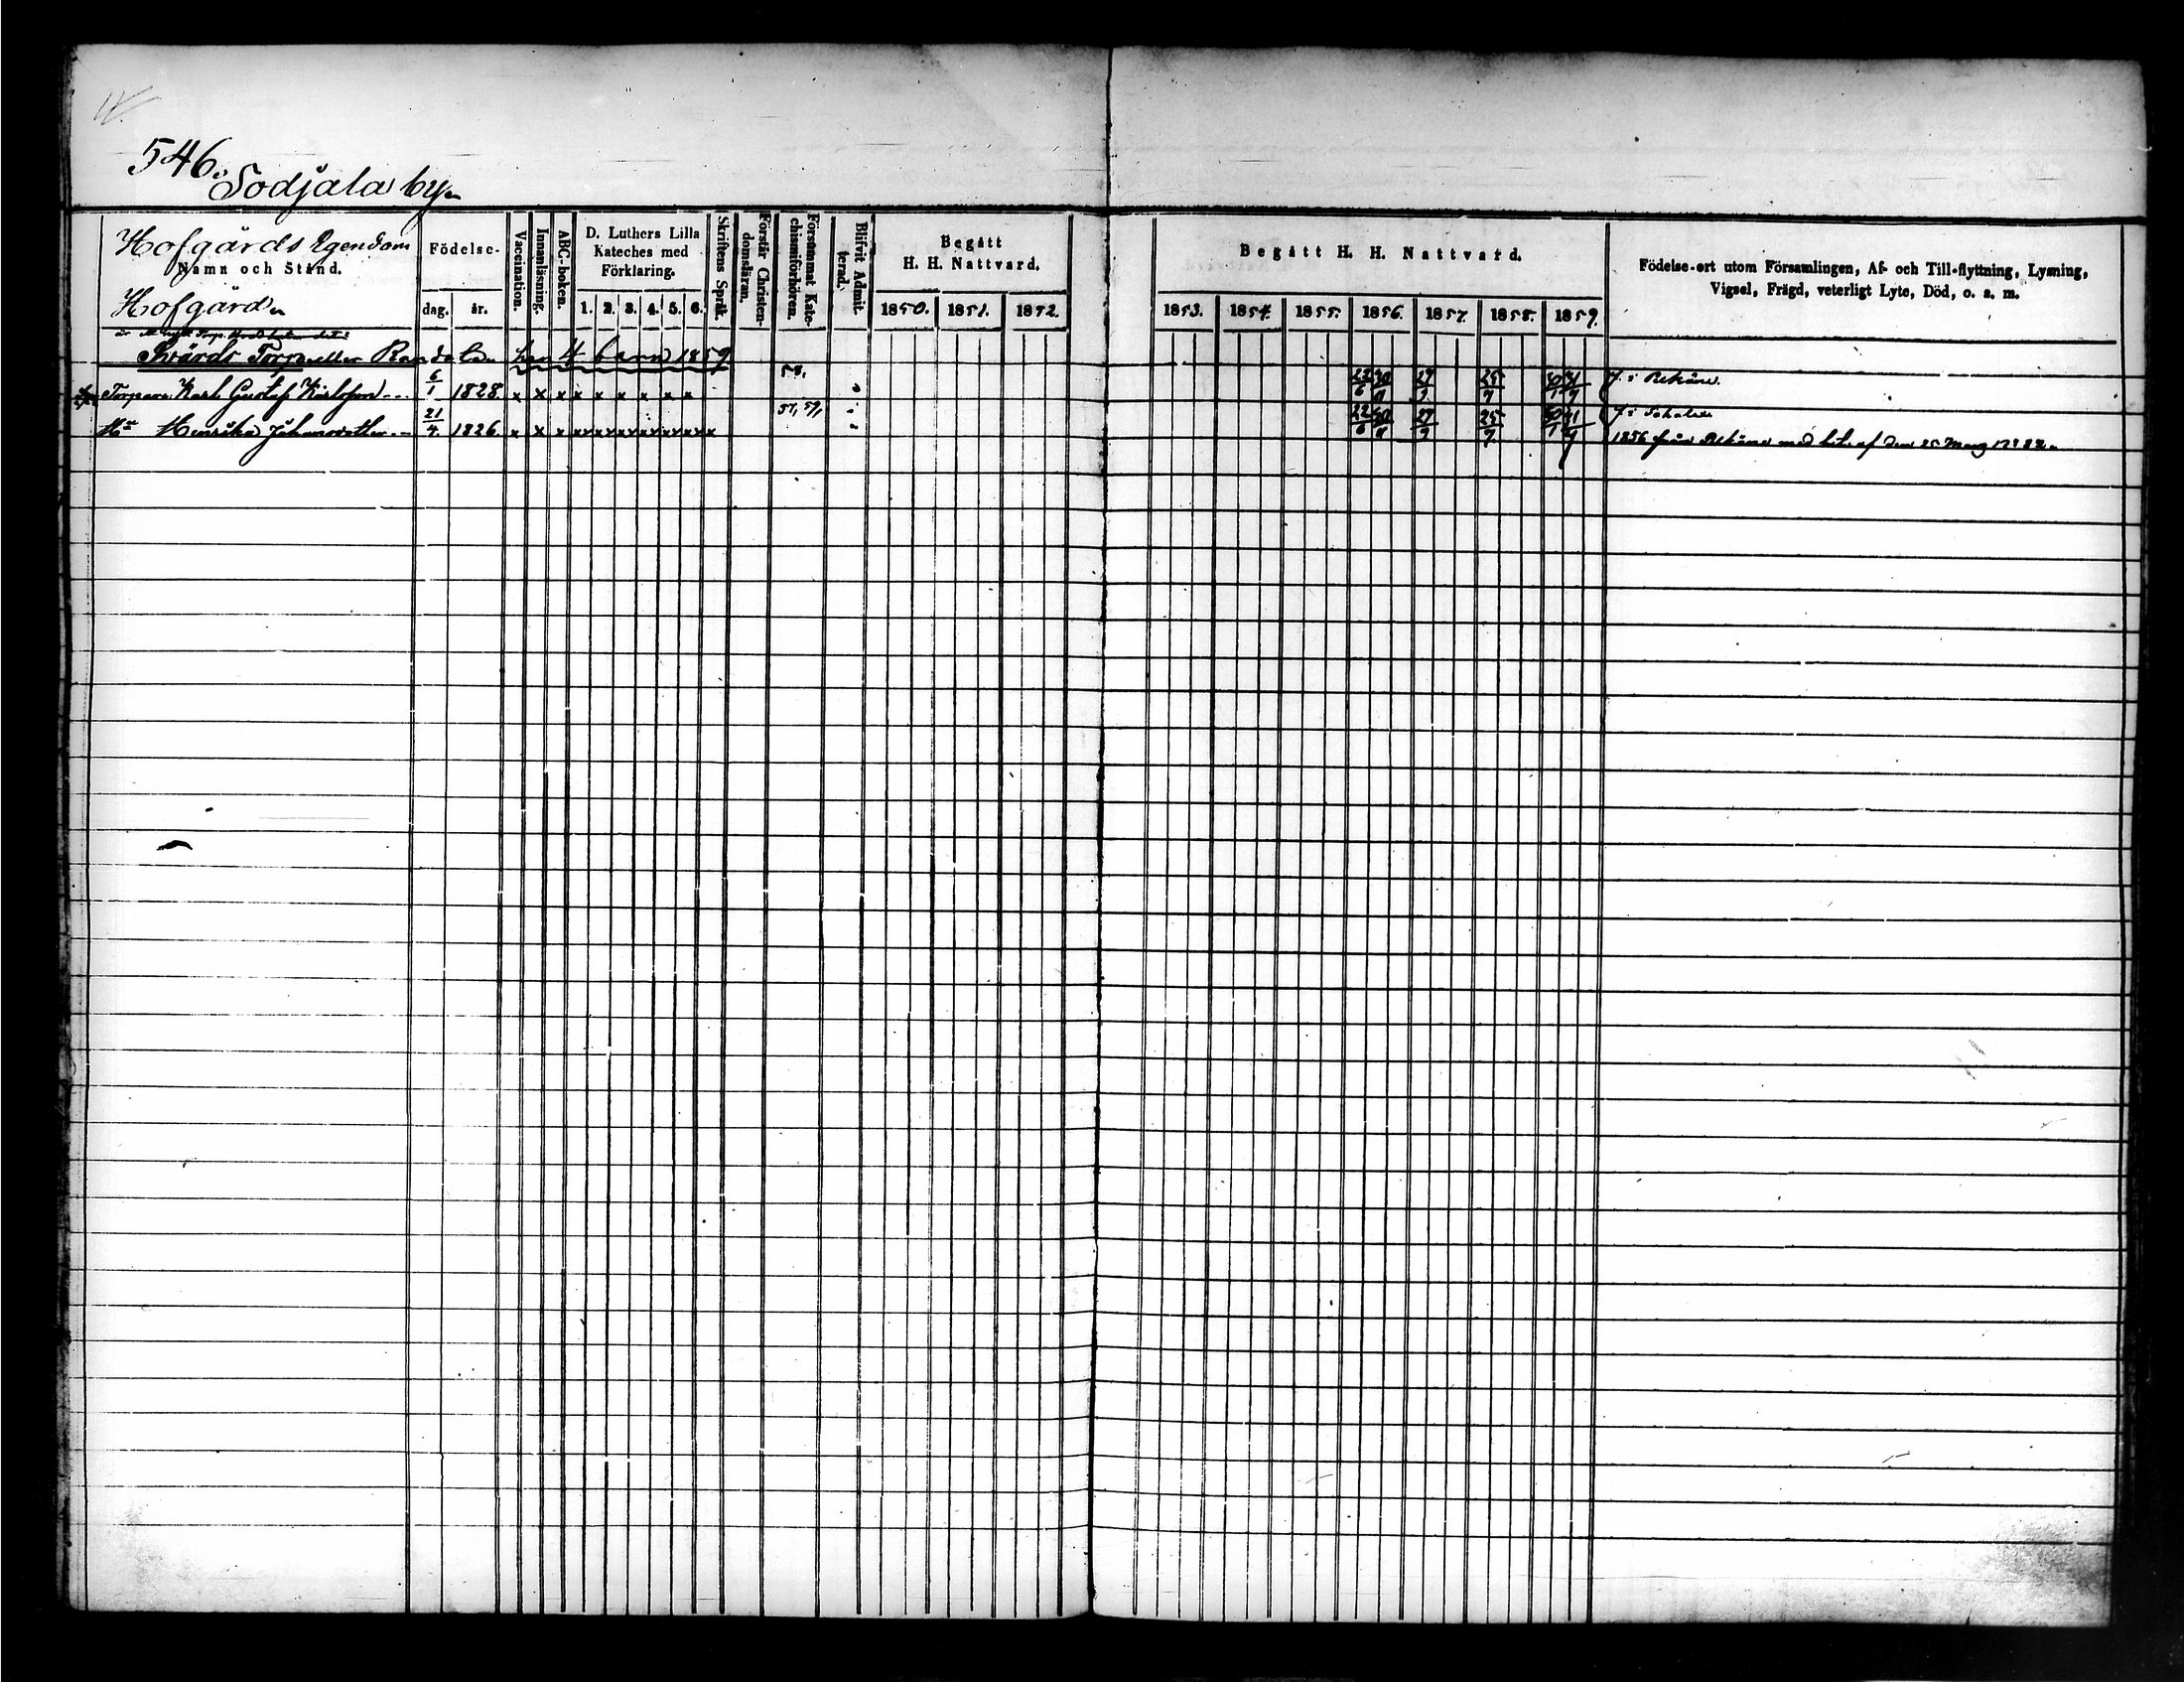 546.
Sodjala by.
Hofgårds Egendom
Namn och Stånd.
Hofgård
Födelse-
dag. år.
Vaccination.
Innanläsning.
ABC-boken.
D. Luthers Lilla
Kateches med
Förklaring.
1. 2. 3. 4. 5. 6.
Skriftens Språk.
Förstår Christen-
domsläran.
Försummat Kate-
chismiförhören.
Blifvit Admit-
terad.
Begått
H. H. Nattvard.
1850. 1851. 1852.
Begått H. H. Nattvard.
1853. 1854. 1855. 1856. 1857. 1858. 1859.
Födelse-ort utom Församlingen, Af- och Till-flyttning, Lysning,
Vigsel, Frägd, veterligt Lyte, Död, o. s. m.
Svärds Torp eller har 4 barn 1859
Torparen Karl Gustaf Karlsson 6/1 1828. x x x x x x x x x 58. 22/6 27/9 25/7 f. i
Hu Henrika Johansdotter 21/4. 1826. x x x x x x x x x x 57, 59, 22/6 27/9 25/7 f. i
1856 från med bet. af den 25 Mars